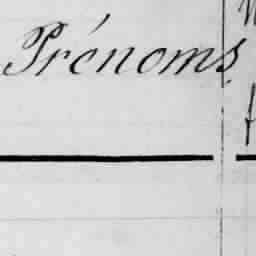 Prénoms